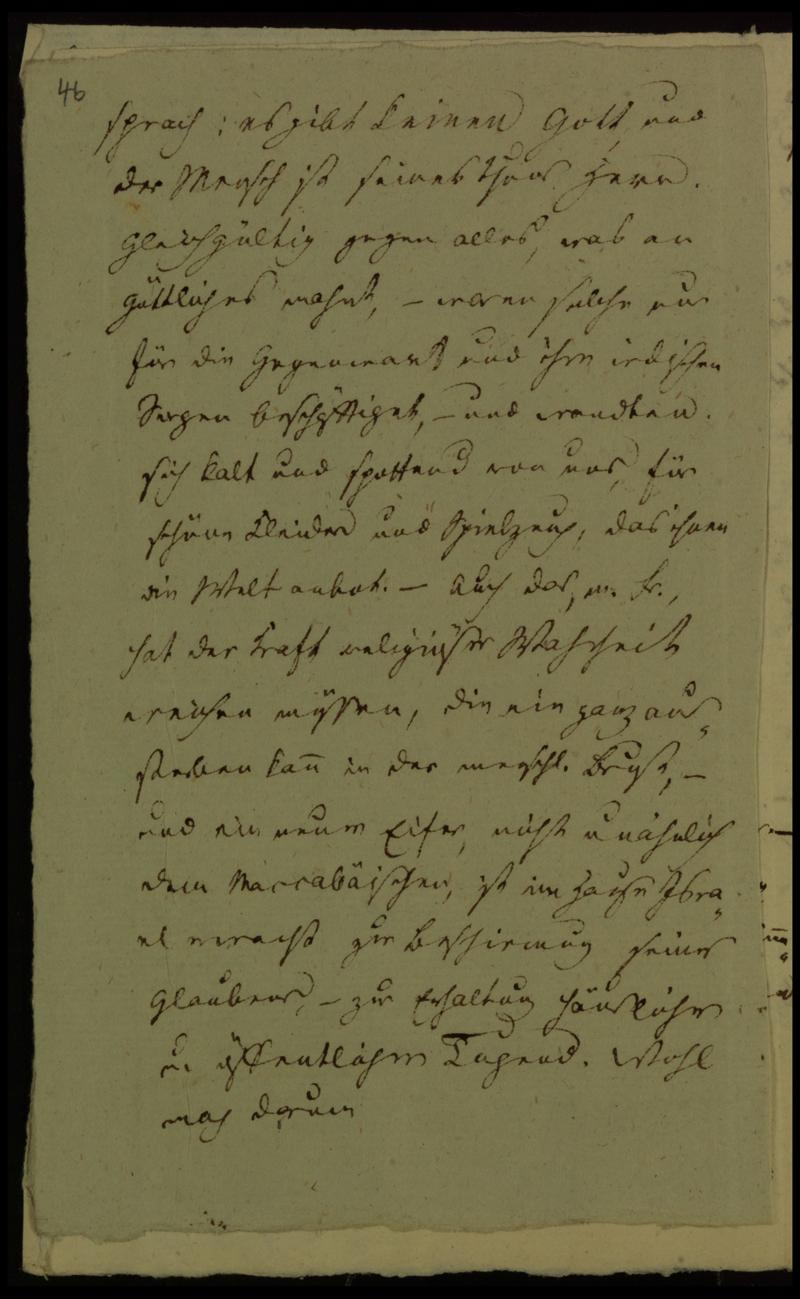 46
sprach: es gibt keinen Gott und
der Mensch ist seines Thuns Herr.
Gleichgültig gegen alles, was an
göttliches mahnt, – waren solche nur
für die Gegenwart und ihre irdischen
Sorgen beschäftiget, – und wandten
sich kalt und spottend von uns, für
schöne Kleider und Spielzeug, das ihnen
die Welt anbot. – Auch das, m. Fr.,
hat der Kraft religiöser Wahrheit
weichen müssen, die nie ganz aus„
sterben kañ in der menschl. Brust, –
und ein neuer Eifer, nicht unähnlich
dem Maccabäischen, ist im Hause Isra„
el erwacht zur Beschirmung seines
Glaubens, – zur Erhaltung häuslicher
u. öffentlicher Tugend. Wohl
mag darum